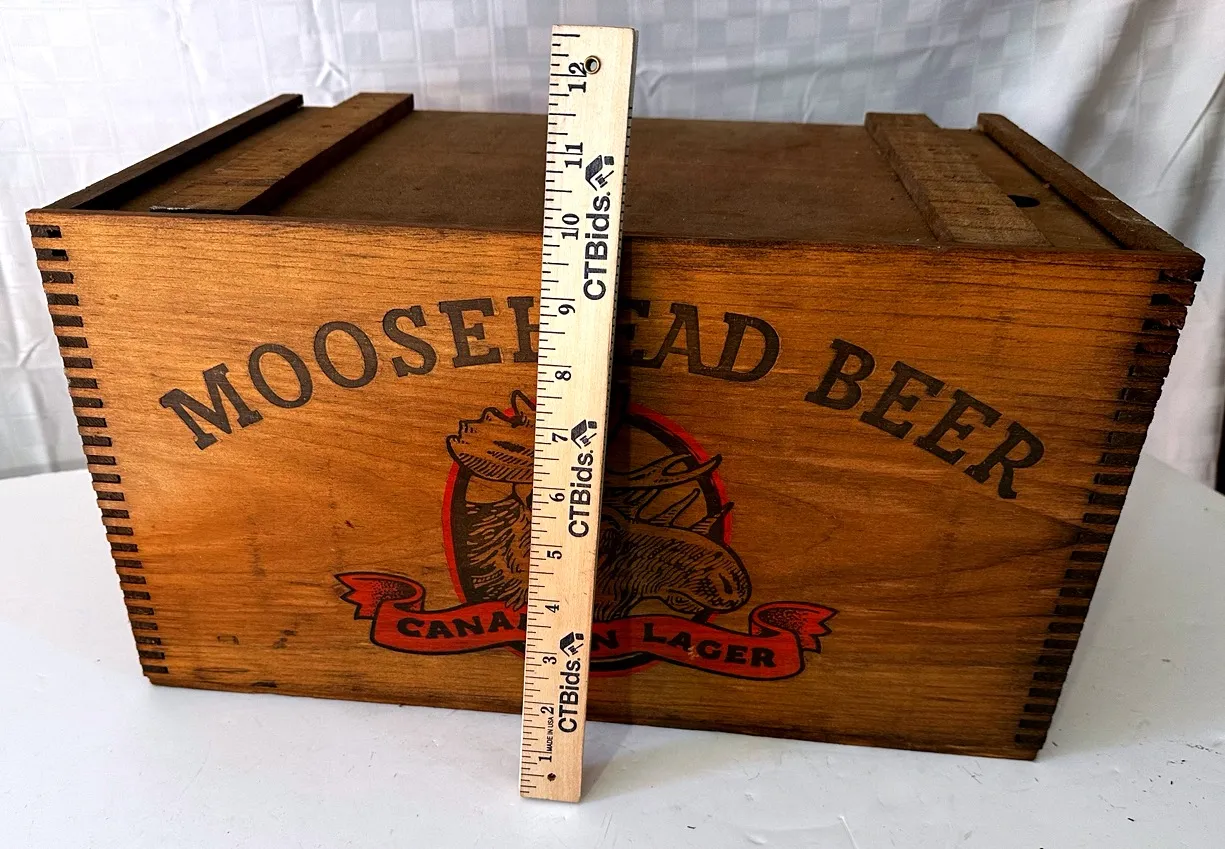 MOOSEH EAD BEER
CANA N LAGER
12
11
10
9
8
7
6
5
4
3
2
1
CTBids.
CTBids.
CTBids.
MADE IN USA